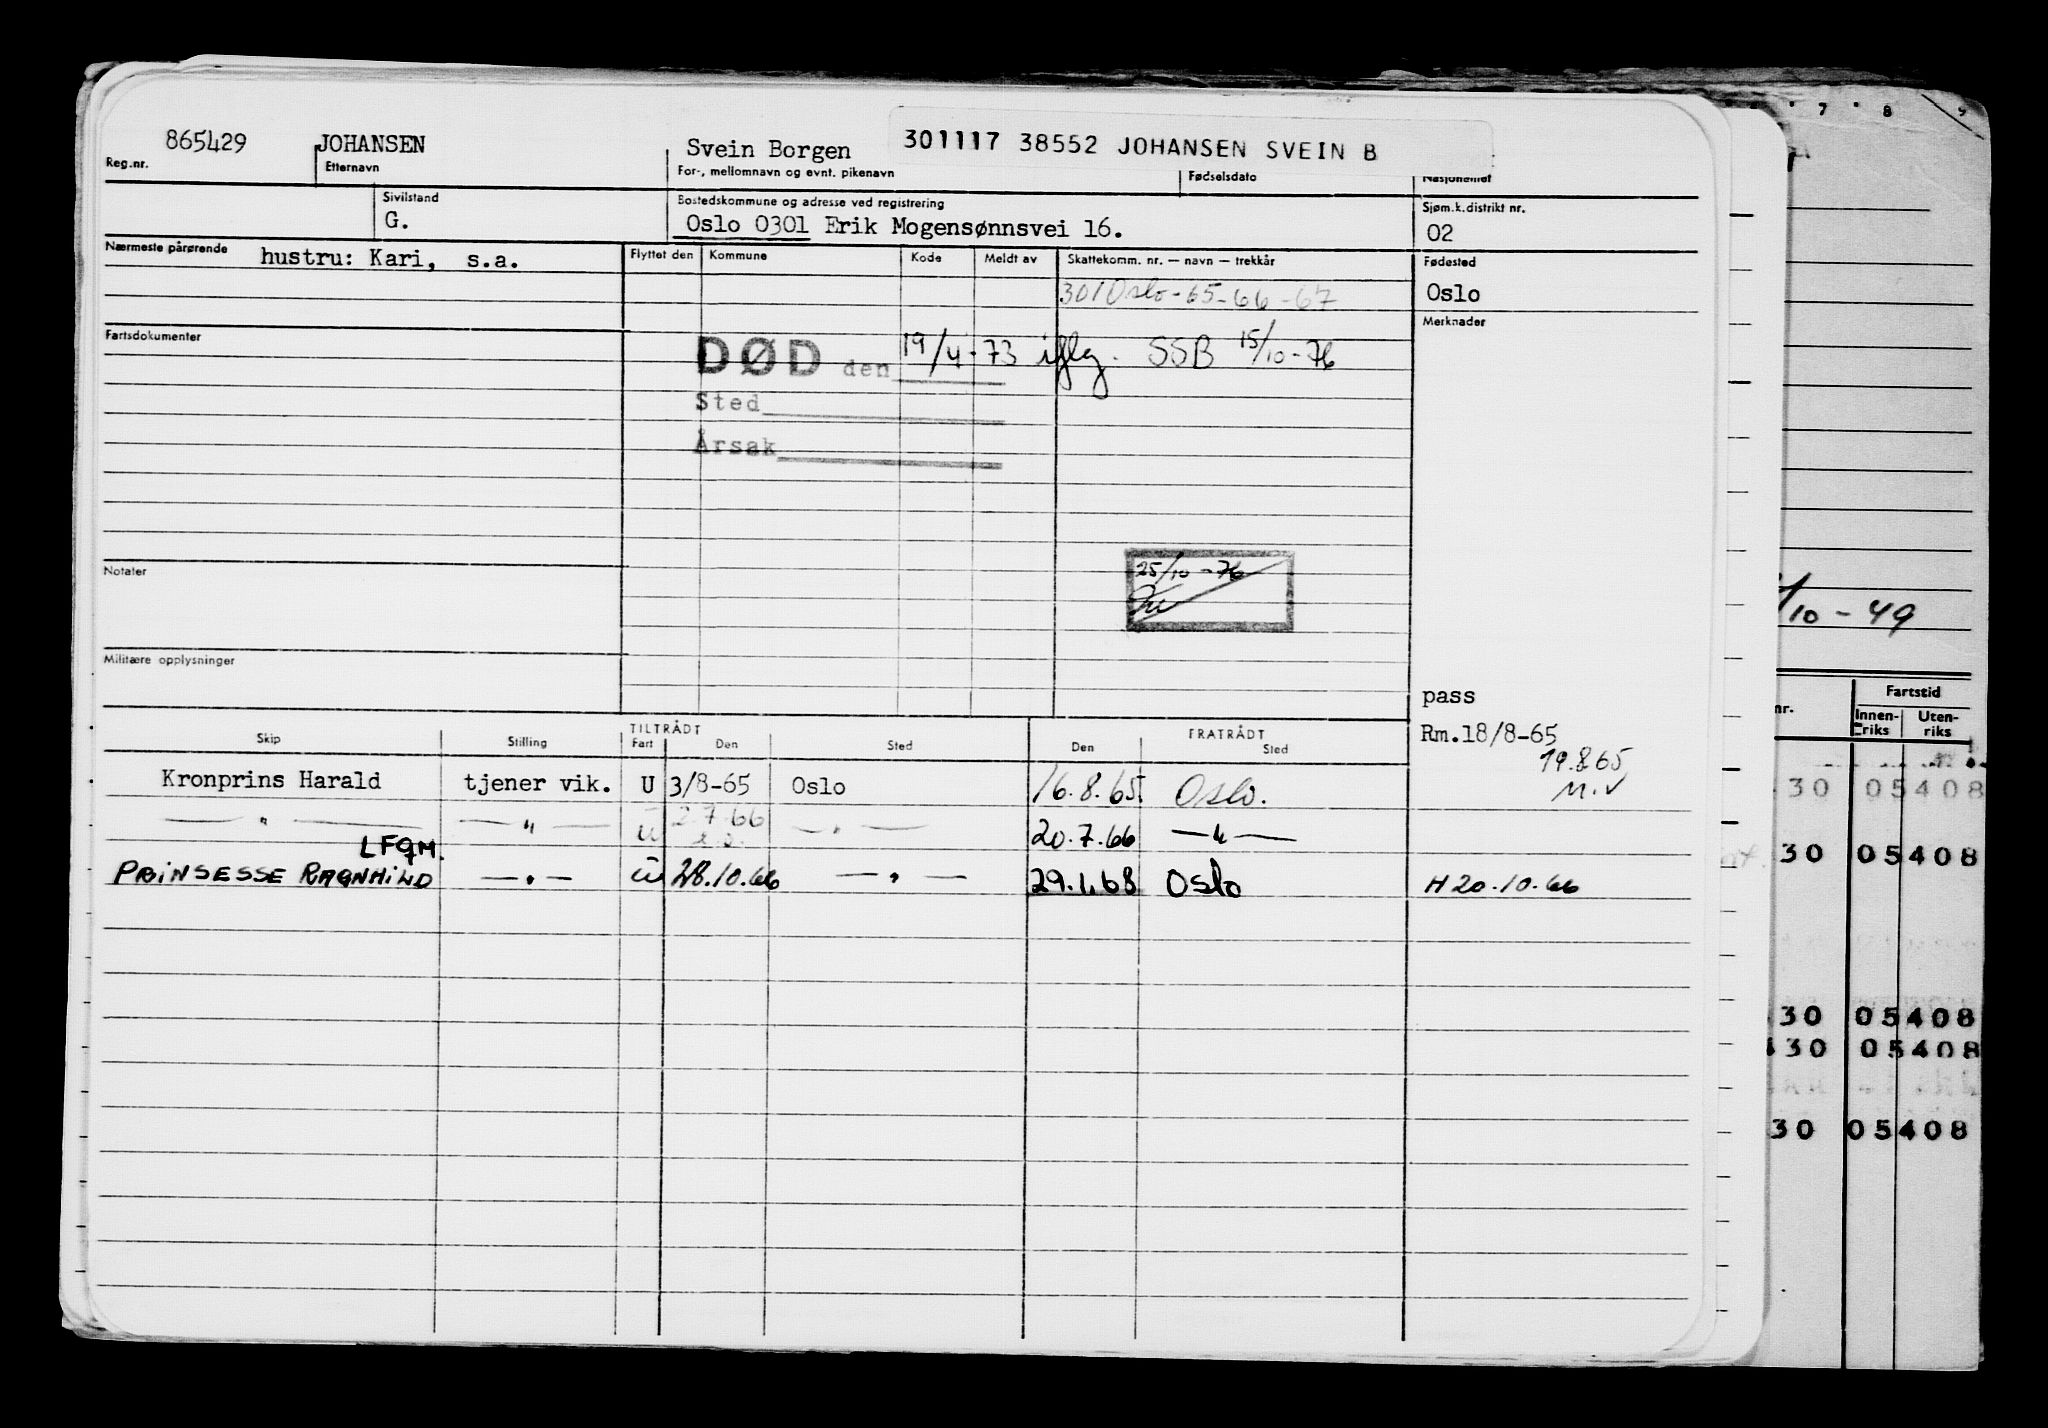 865429 JOHANSEN Svein Borgen 301117 38552 JOHANSEN SVEIN B
Reg.nr. Etternavn For-, mellomnavn og evnt. pikenavn Fødselsdato Nasjonalitet
Sivilstand Bostedskommune og adresse ved registrering Sjøm.k.distrikt nr.
G. Oslo 0301 Erik Mogensønnsvei 16. 02
Nærmeste pårørende hustru: Kari, s.a. Flyttet den Kommune Kode Meldt av Skattekomm. nr. — navn — trekkår Fødested
301 Oslo - 65 - 66 - 67 Oslo
Fartsdokumenter Merknader
DØD den 19/4-73 iflg. SSB 15/10-76
Sted
Årsak
25/10-76
Notater
Militære opplysninger
pass
Rm.18/8-65
19.8.65
M.V
TILTRÅDT FRATRÅDT
Skip Stilling Fart Den Sted Den Sted
Kronprins Harald tjener vik. U 3/8-65 Oslo 16.8.65 Oslo.
— " — — " — U 2.7.66 — " — 20.7.66 — " —
LFQM.
PRINSESSE RAGNHILD — " — U 28.10.66 — " — 29.1.68 Oslo H 20.10.66
7 8 9
/10 - 49
nr. Fartstid
Innen-riks Uten-riks
30 05408
30 05408
30 05408
430 05408
30 05408